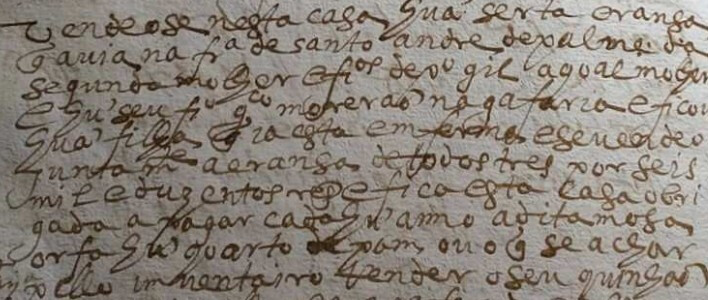 Vendeose nesta casa hua' serta eransa
q̃ avia na fra de santo andre de palme. da
segunda molher e fos de po gil a qoal molher
E hu' seu fo gco morerão na gafaria e ficou
hua' filha q̃ ja esta emferma e se vendeo
junta mte a eransa de todos tres por seis
mil e duzentos res e fica esta casa obri
gada a pagar cada hu' anno a dita mosa
orfa hu' quarto de pam ou o q̃ se achar
pello imventairo Render o seu quinhão